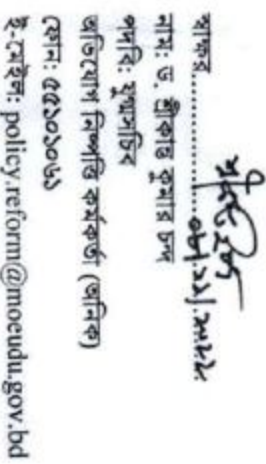 স্বাক্ষর....................
নাম: ড. শ্রীকান্ত কুমার চন্দ
পদবি: যুগ্মসচিব
অভিযোগ নিষ্পত্তি কর্মকর্তা (অনিক)
ফোন: ৫৫১০১০৬১
ই-মেইল: policy.reform@moeudu.gov.bd